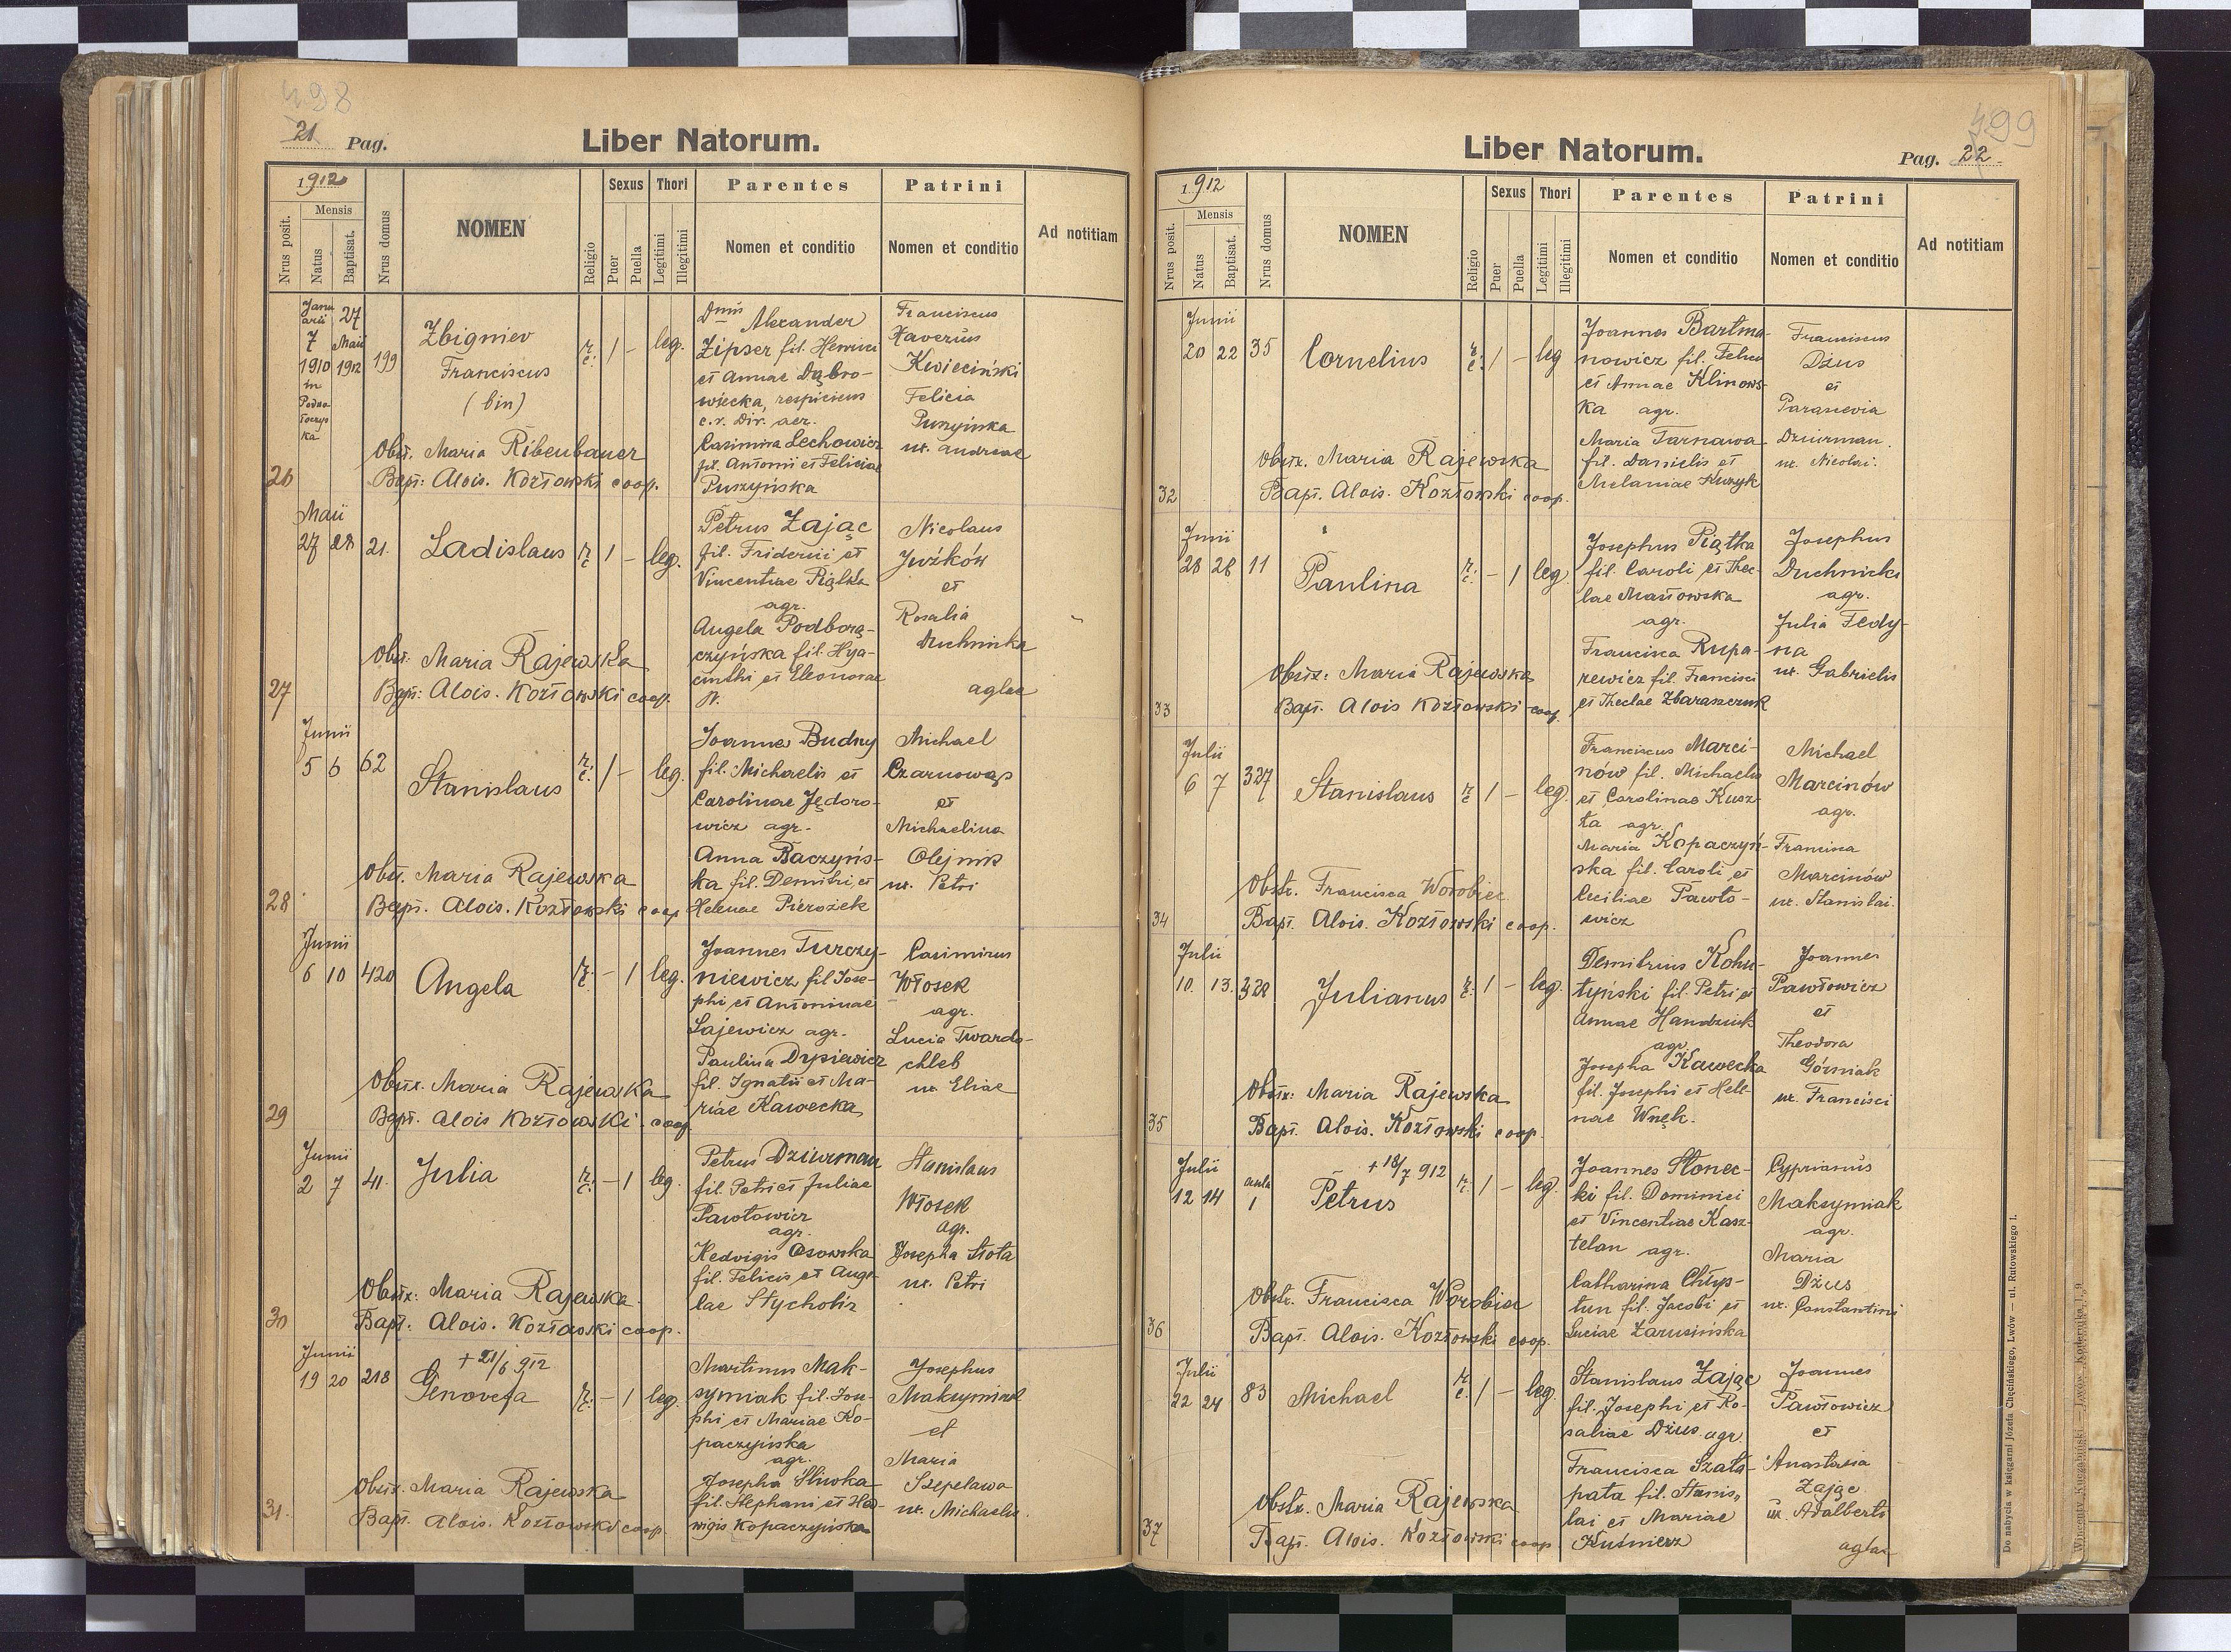 498
21 Pag.
Liber Natorum.
1912
Mensis
Nrus posit.
Natus
Baptisat.
Nrus domus
NOMEN
Religio
Sexus
Puer
Puella
Thori
Legitimi
Illegitimi
Parentes
Nomen et conditio
Patrini
Nomen et conditio
Ad notitiam
26
Janu
arii
7
1910
in
27
Maii
1912
199
Zbigniev
Franciscus
(bin)
r. c. 1 – leg.
Alexander
Zipser fil. Henrici
et Annae Dąbro-
wiecka,
c. r. Dir.
Casimira Lechowicz
fil. Antonii et Feliciae
Puszyńska
Franciscus
Xaverius
Kwieciński
Felicia
ux. Andreae
Obst. Maria Ribenbauer
Bapt: Alois. Kozłowski coop.
27
Maii
27 28 21.
Ladislaus
r. c. 1 – leg.
Petrus Zając
fil. Friderici et
Vincentiae Piątka
agr.
Angela Podborą-
czyńska fil. Hya-
cinthi et Eleonorae
N.
Nicolaus
Juźków
et
Rosalia
Duchnicka
aglae
Obst: Maria Rajewska
Bapt: Alois. Kozłowski coop.
28
Junii
5 6 62
Stanislaus
r. c. 1 – leg.
Joannes Budny
fil. Michaelis et
Carolinae Jędoro-
wicz agr.
Anna Baczyńs-
ka fil. Demitri, et
Helenae Pierożek
Michael
Czarnowąs
et
Michaelina
Olejnik
ux. Petri
Obst. Maria Rajewska
Bapt. Alois. Kozłowski coop
29
Junii
6 10 420
Angela
r. c. – 1 leg.
Joannes Turczy-
niewicz fil. Jose-
phi et Antoninae
Łajewicz agr.
Paulina Dysiewicz
fil. Ignatii et Ma-
riae Kawecka
Casimirus
Włosek
agr.
Lucia Twardo-
chleb
ux. Eliae
Obstx. Maria Rajewska
Bapt. Alois Kozłowski coop
30
Junii
2 7 41.
Julia
r. c. – 1 leg.
Petrus Dziurman
fil. Petri et Juliae
Pawłowicz
agr.
Hedvigis Osowska
fil. Felicis et Ange-
lae Stycholiz
Stanislaus
Włosek
agr.
Josepha Słota
ux. Petri
Obstx: Maria Rajewska
Bapt. Alois. Kozłowski coop.
31.
Junii
19 20 218
+ 21/6 912
Genovefa
r. c. – 1 leg.
Martinus Mak-
symiak fil. Jose-
phi et Mariae Ko-
paczyńska
agr.
Josepha Śliwka
fil. Stephani et Hed-
wigis Kopaczyńska
Josephus
Maksymiak
et
Maria
Szepelawa
ux. Michaelis.
Obstx. Maria Rajewska
Bapt. Alois. Kozłowski coop.
499
Liber Natorum.
Pag. 22
1912
Mensis
Nrus posit.
Natus
Baptisat.
Nrus domus
NOMEN
Religio
Sexus
Puer
Puella
Thori
Legitimi
Illegitimi
Parentes
Nomen et conditio
Patrini
Nomen et conditio
Ad notitiam
32
Junii
20 22 35
Cornelius
r. c. 1 – leg
Joannes Bartma-
nowicz fil. Felicis
et Annae Klinows-
ka agr.
Maria Tarnawa
fil. Danielis et
Melaniae Kuzyk
Franciscus
Dżus
et
Parascevia
Dziurman.
ux. Nicolai.
Obstx. Maria Rajewska
Bapt. Alois. Kozłowski coop.
33
Junii
28 28 11
Paulina
r. c. – 1 leg.
Josephus Piątka
fil. Caroli et Thec-
lae Masłowska
agr.
Francisca Rupa-
rewicz fil. Francisci
et Theclae Zbaraszczuk
Josephus
Duchnicki
agr.
Julia Fedy-
na
ux. Gabrielis
Obstx: Maria Rajewska
Bapt. Alois Kozłowski coop.
34
Julii
6 7 327
Stanislaus
r. c 1 – leg.
Franciscus Marci-
nów fil. Michaelis
et Carolinae Kusz-
ta agr.
Maria Kopaczyń-
ska fil. Caroli et
Ceciliae Pawło-
wicz
Michael
Marcinów
agr.
Francisca
Marcinów
ux. Stanislai.
Obstr. Francisca Worobiec
Bapt. Alois. Kozłowski coop.
35
Julii
10. 13. 328
Julianus
r. c. 1 – leg.
Demitrius Kohu-
tyński fil. Petri et
Annae Handziuk
agr.
Josepha Kawecka
fil. Josephi et Hele-
nae Wnęk.
Joannes
Pawłowicz
et
Theodora
Górniak
ux. Francisci
Obstx: Maria Rajewska
Bapt. Alois. Kozłowski coop.
36
Julii
12 14 aula
1
+ 18/7 912
Petrus
r. c. 1 – leg.
Joannes Słonec-
ki fil. Dominici
et Vincentiae Kasz-
telan agr.
Catharina Chłys-
tun fil. Jacobi et
Luciae Zarusińska
Cyprianus
Maksymiak
agr.
Maria
Dżus
ux. Constantini
Obstr. Francisca Worobiec
Bapt. Alois. Kozłowski coop.
37
Julii
22 24 83
Michael
r. c. 1 – leg.
Stanislaus Zając
fil. Josephi et Ro-
saliae Dżus agr.
Francisca Szała-
pata fil. Stanis-
lai et Mariae
Kuśnierz
Joannes
Pawłowicz
et
Anastasia
Zając
ux. Adalberti
aglae
Obstx. Maria Rajewska
Bapt. Alois. Kozłowski coop
Do nabycia w księgarni Józefa Chęcińskiego, Lwów — ul. Rutowskiego 1.